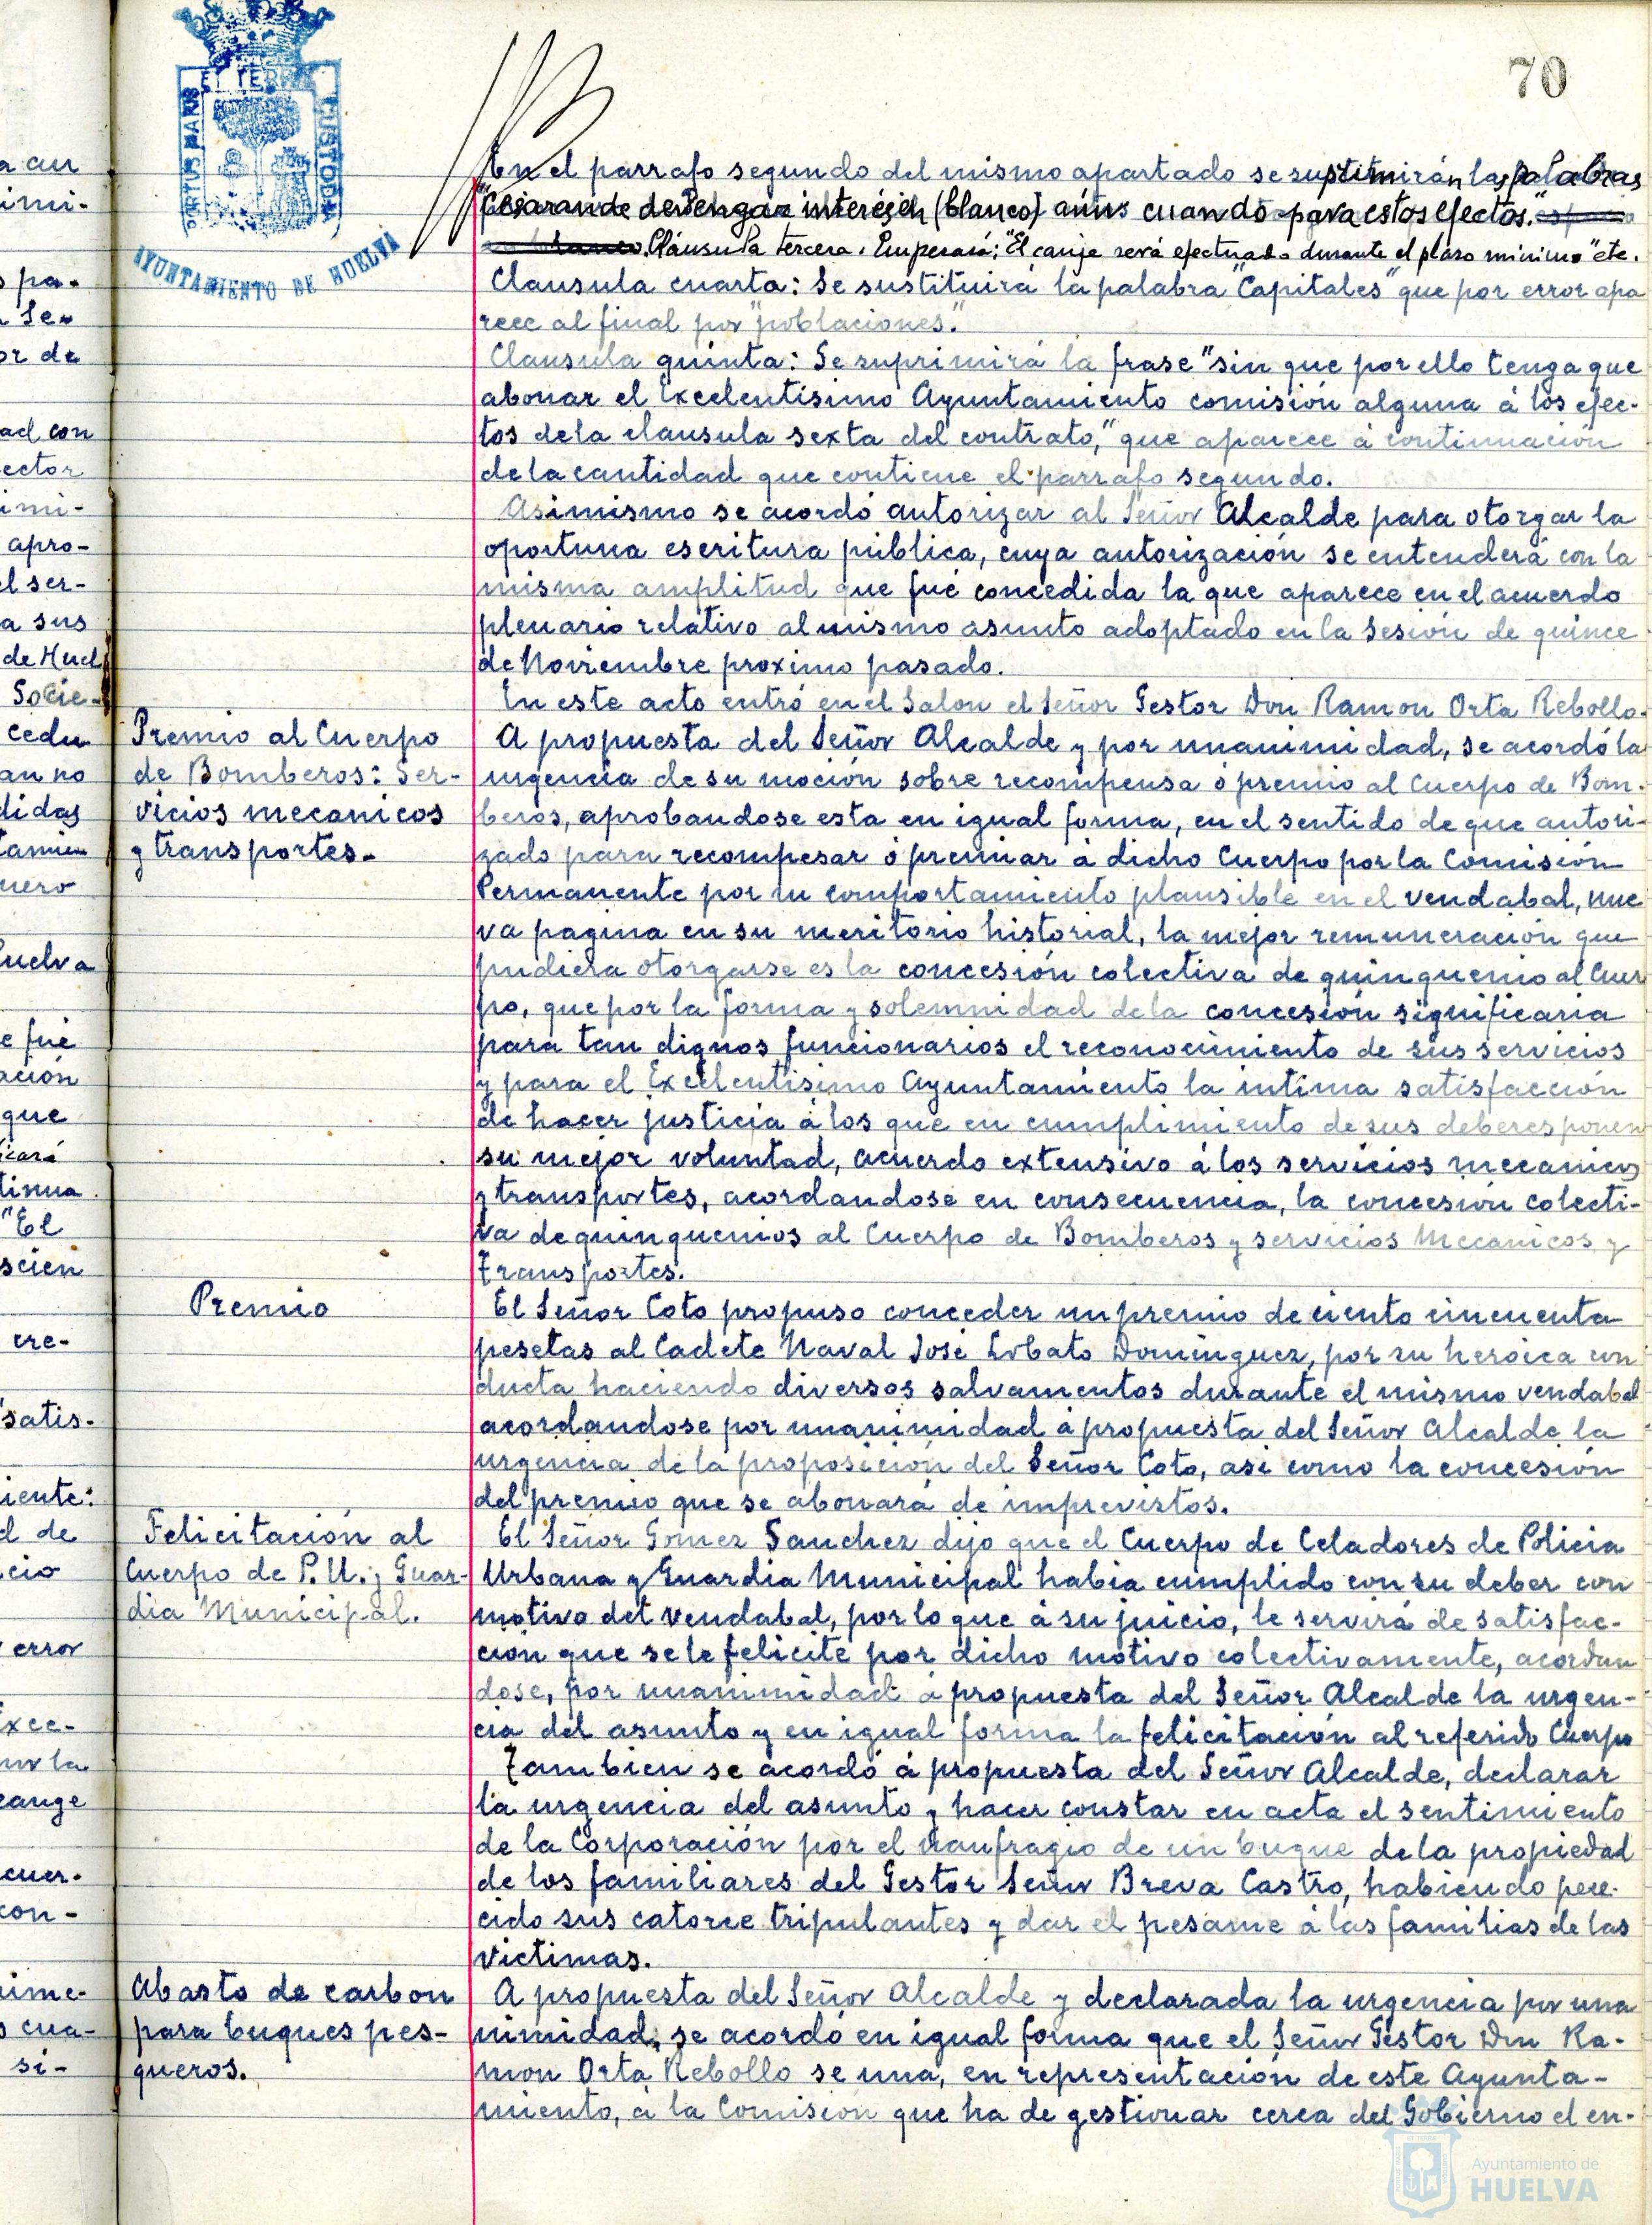 70
PORTUS MARIS ET TERRAE CUSTODIA
AYUNTAMIENTO DE HUELVA
En el parrafo segundo del mismo apartado se suprimirán las palabras
devengar interés en (blanco) aún cuando para estos efectos."
Cláusula tercera. Empezará: "El canje será efectuado durante el plazo minimo" etc.
Clausula cuarta: Se sustituirá la palabra "Capitales" que por error apa
rece al final por "poblaciones."
Clausula quinta: Se suprimirá la frase "sin que por ello tenga que
abonar el Excelentisimo Ayuntamiento comisión alguna á los efec-
tos de la clausula sexta del contrato," que aparece á continuación
de la cantidad que contiene el parrafo segundo.
Asimismo se acordó autorizar al Señor Alcalde para otorgar la
oportuna escritura pública, cuya autorización se entenderá con la
misma amplitud que fué concedida la que aparece en el acuerdo
plenario relativo al mismo asunto adoptado en la Sesión de quince
de Noviembre proximo pasado.
En este acto entró en el Salon el Señor Gestor Don Ramon Orta Rebollo.
Premio al Cuerpo
de Bomberos: Ser-
vicios mecanicos
y transportes.
A propuesta del Señor Alcalde y por unanimidad, se acordó la
urgencia de su moción sobre recompensa ó premio al Cuerpo de Bom-
beros, aprobandose esta en igual forma, en el sentido de que autori-
zado para recompesar ó premiar á dicho Cuerpo por la Comisión
Permanente por su comportamiento plausible en el vendabal, nue
va pagina en su meritorio historial, la mejor remuneración que
pudiera otorgarse es la concesión colectiva de quinquenio al Cuer
po, que por la forma y solemnidad de la concesión significaria
para tan dignos funcionarios el reconocimiento de sus servicios
y para el Excelentisimo Ayuntamiento la intima satisfacción
de hacer justicia á los que en cumplimiento de sus deberes ponen
su mejor voluntad, acuerdo extensivo á los servicios mecanicos
y transportes, acordandose en consecuencia, la concesión colecti-
va de quinquenios al Cuerpo de Bomberos y servicios Mecanicos y
Transportes.
Premio
El Señor Coto propuso conceder un premio de ciento cincuenta
pesetas al Cadete Naval José Lobato Dominguez, por su heroica con
ducta haciendo diversos salvamentos durante el mismo vendabal
acordandose por unanimidad á propuesta del Señor Alcalde la
urgencia de la proposición del Señor Coto, asi como la concesión
del premio que se abonará de imprevistos.
Felicitación al
Cuerpo de P.U. y Guar-
dia Municipal.
El Señor Gomez Sanchez dijo que el Cuerpo de Celadores de Policia
Urbana y Guardia Municipal habia cumplido con su deber con
motivo del vendabal, por lo que á su juicio, le servirá de satisfac-
ción que se le felicite por dicho motivo colectivamente, acordan
dose, por unanimidad á propuesta del Señor Alcalde la urgen-
cia del asunto y en igual forma la felicitación al referido Cuerpo
Tambien se acordó á propuesta del Señor Alcalde, declarar
la urgencia del asunto y hacer constar en acta el sentimiento
de la Corporación por el naufragio de un buque de la propiedad
de los familiares del Gestor Señor Breva Castro, habiendo pere-
cido sus catorce tripulantes y dar el pesame á las familias de las
victimas.
Abasto de carbon
para buques pes-
queros.
A propuesta del Señor Alcalde y declarada la urgencia por una
nimidad, se acordó en igual forma que el Señor Gestor Don Ra-
mon Orta Rebollo se una, en representación de este Ayunta-
miento, á la Comision que ha de gestionar cerca del Gobierno el en-
Ayuntamiento de
HUELVA